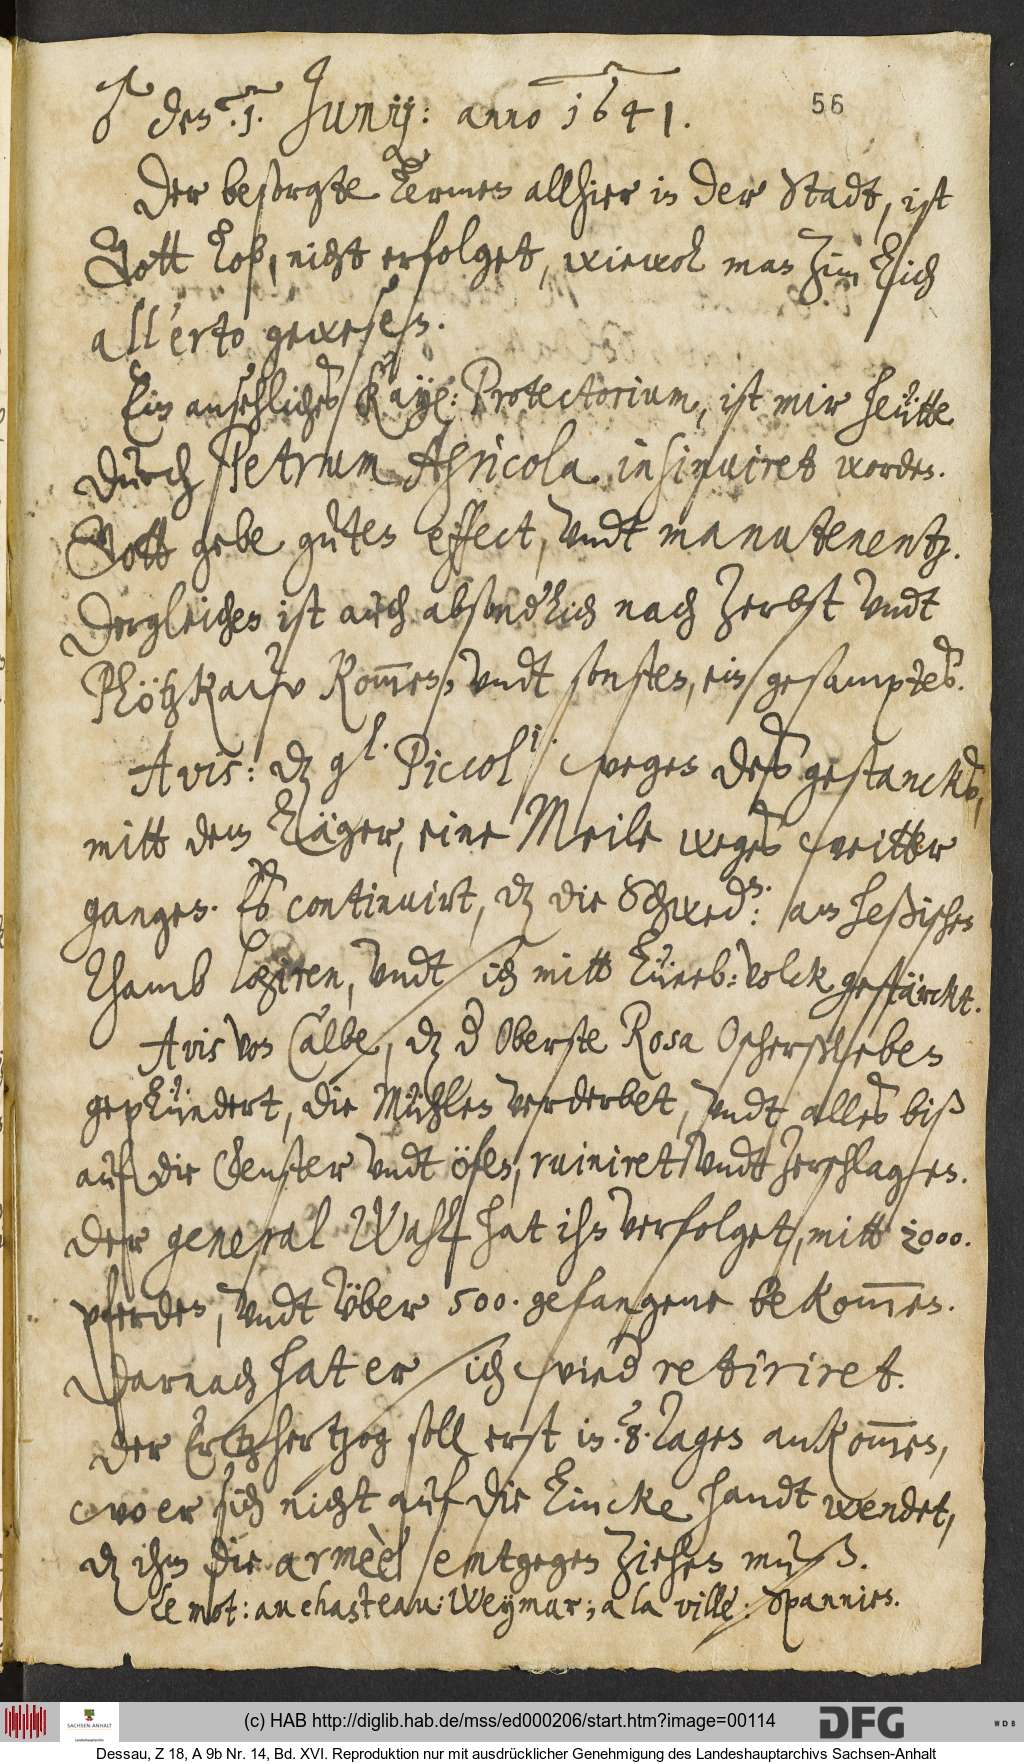 ♂ den .1. Junij: anno 1641.
56
Der besorgte Lermen allhier in der Stadt, ist
Gott lob, nicht erfolget, wiewol man zimlich
all'erto gewesen.
Ein ansehliches Kayß: Protectorium, ist mir heütte
durch Petrum Agricola insinuiret worden.
Gott gebe guten effect, undt manutenentz.
Dergleichen ist auch absonderlich nach Zerbst undt
Plötzkaw kom̅en, undt sonsten, ein gesamptes.
Avis: dz gl. Piccol: wegen deß gestancks,
mitt dem Läger, eine Meile weges weitter
gangen. Es continuirt, dz die Schwed: am heßischen
Thamb logiren, undt sich mitt Lüneb: volck gestärckt.
Avis von Calbe, dz d Oberste Rosa Oscherßleben
geplündert, die Mühlen verderbet, undt alles biß
auf die Fenster undt öfen, ruiniret undt zerschlagen.
Der general Wahl hat ihn verfolget, mitt 2000.
pferden, undt über 500. gefangene bekom̅en.
Darnach hat er sich wied retiriret.
Der Ertzhertzog soll erst in .8. Tagen ankom̅en,
wo er sich nicht auf die Lincke handt wendet,
dz ihm die armèè entgegen ziehen muß.
Le mot: au chasteau: Weymar; a la ville: Spannien.
(c) HAB http://diglib.hab.de/mss/ed000206/start.htm?image=00114
SACHSEN-ANHALT
DFG
WDB
Dessau, Z 18, A 9b Nr. 14, Bd. XVI. Reproduktion nur mit ausdrücklicher Genehmigung des Landeshauptarchivs Sachsen-Anhalt